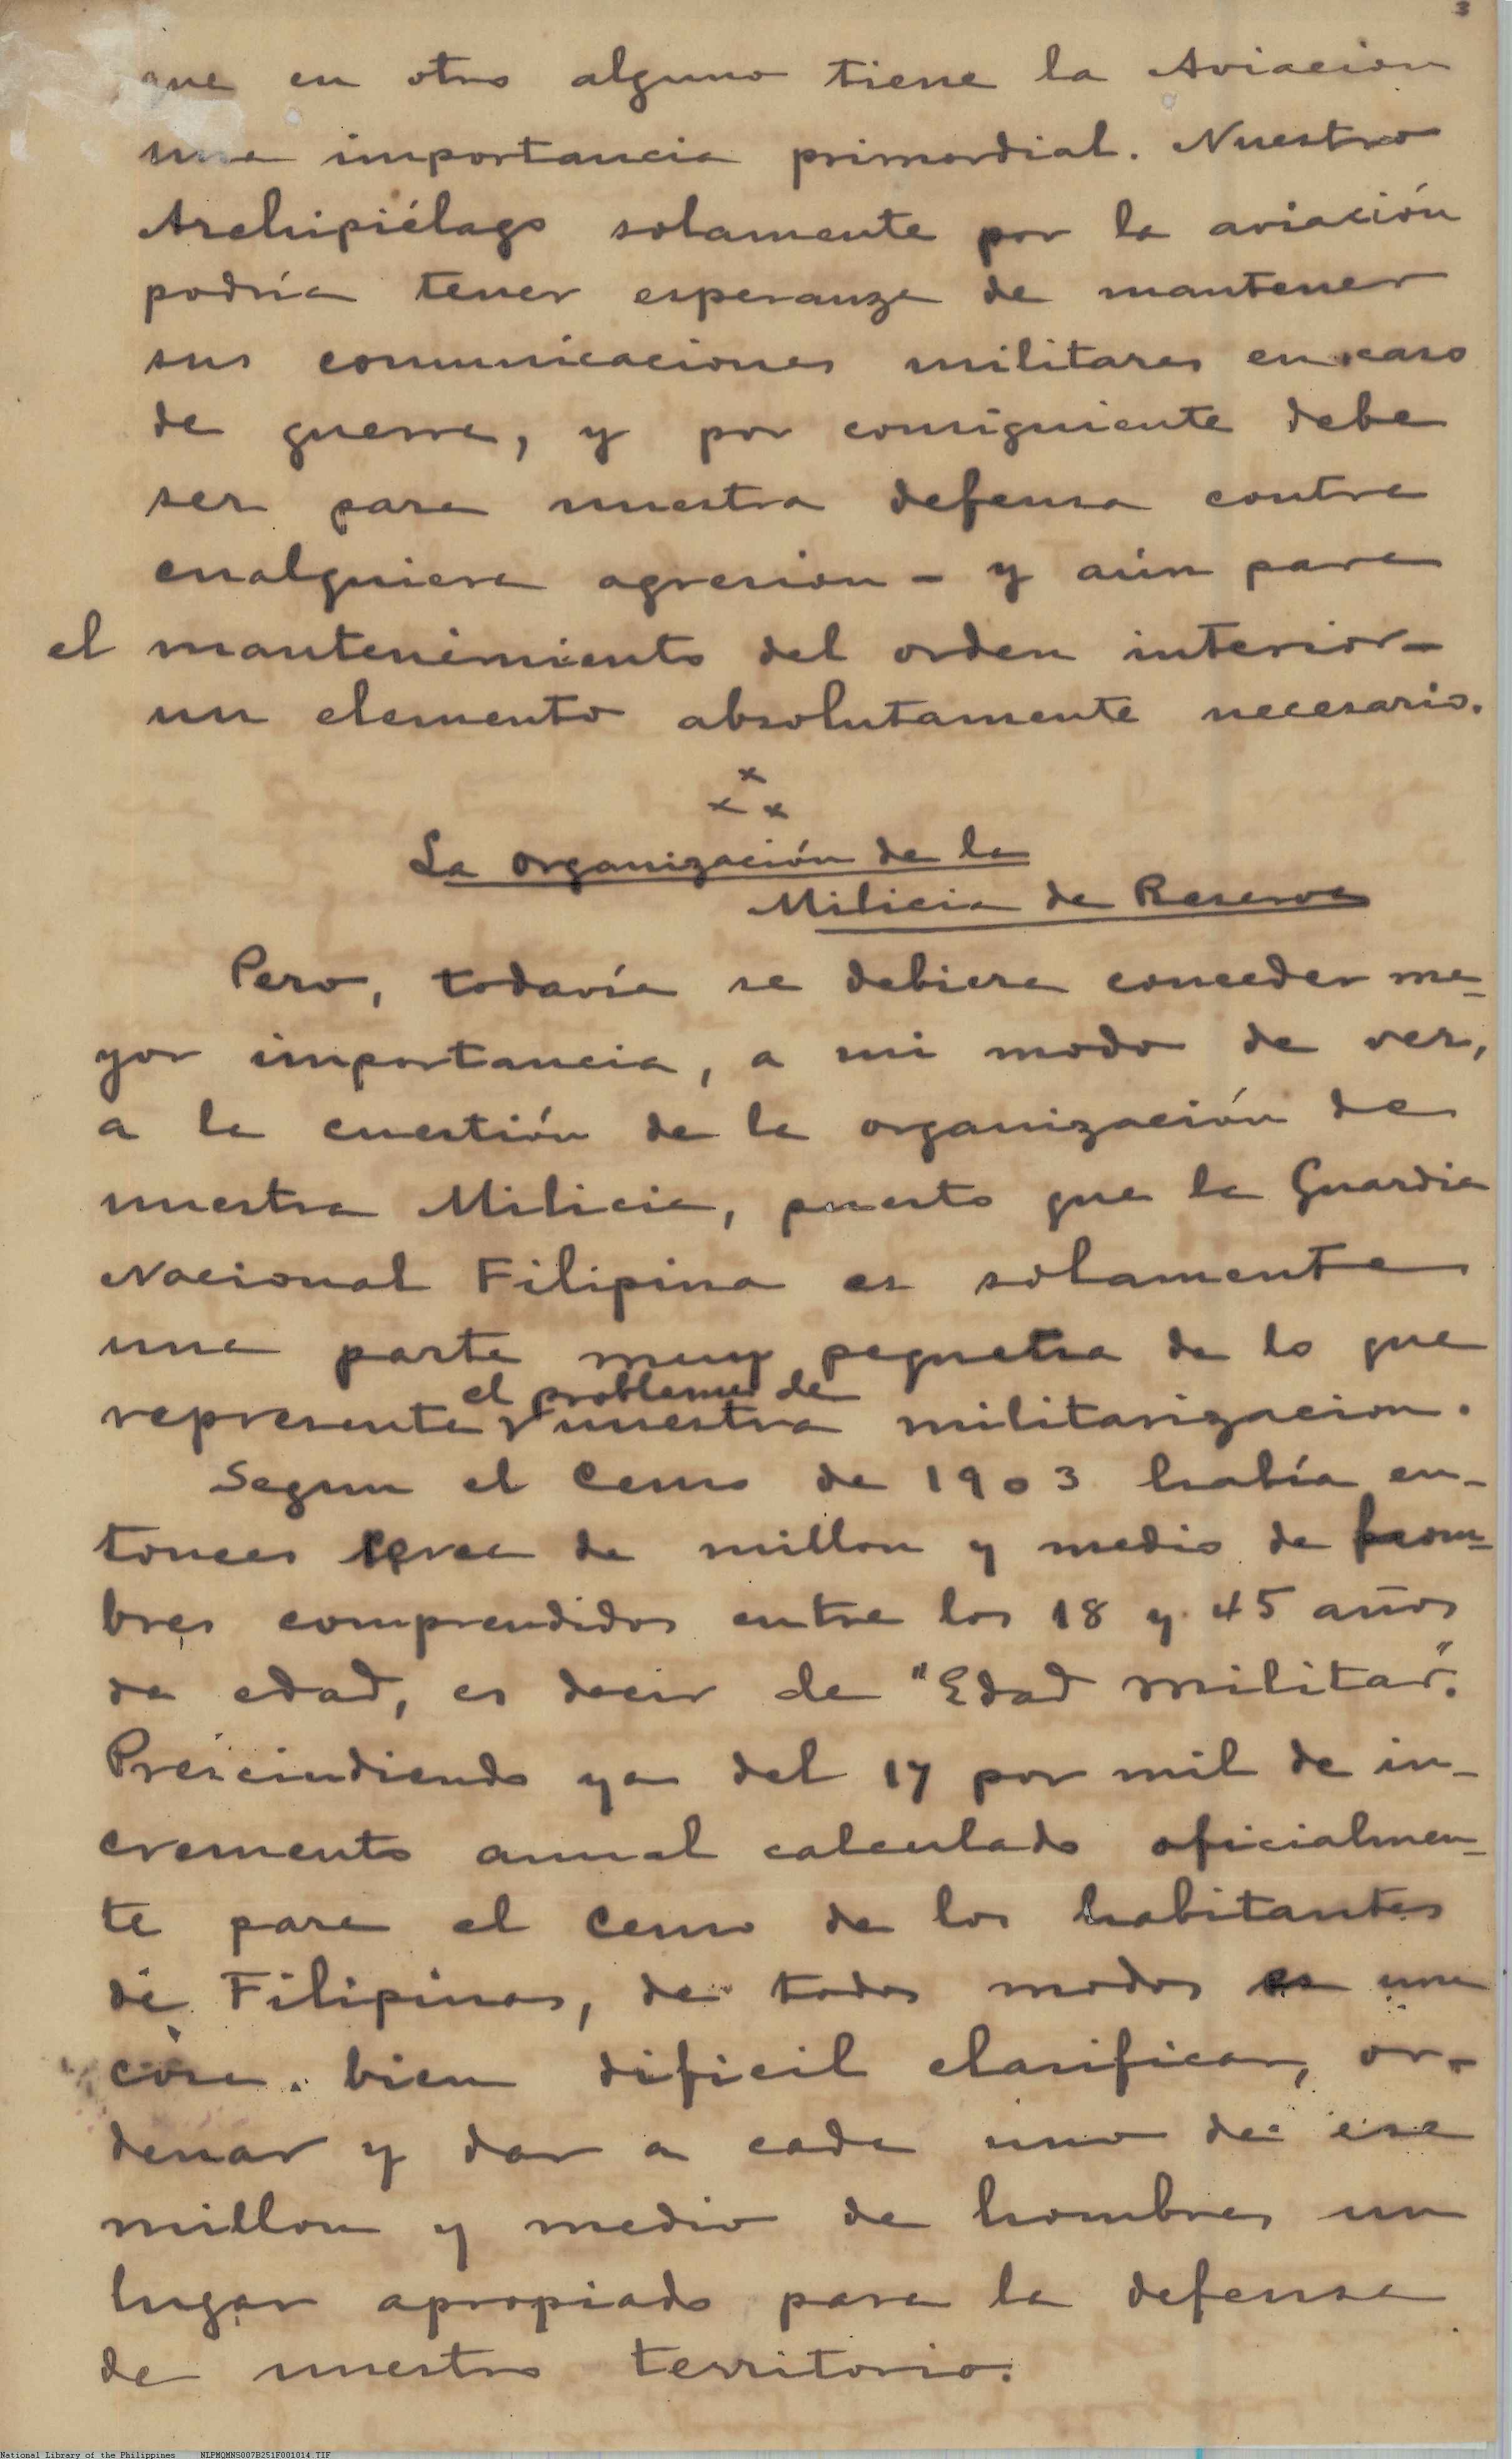 3
que en otro alguno tiene la Aviacion
una importancia primordial. Nuestro
Archipiélago solamente por la aviación
podría tener esperanza de mantener
sus comunicaciones militares en caso
de guerra, y por consiguiente debe
ser para nuestra defensa contra
cualquiera agresion - y aún para
el mantenimiento del orden interior -
un elemento absolutamente necesario.
x
x x
La organización de la
Milicia de Reserva
Pero, todavía se debiera conceder ma-
yor importancia, a mi modo de ver,
a la cuestión de la organización de
nuestra Milicia, puesto que la Guardia
Nacional Filipina es solamente
una parte muy pequeña de lo que
el problema de
representa nuestra militarizacion.
Segun el Censo de 1903 había en-
tonces cerca de millon y medio de hom-
bres comprendidos entre los 18 y 45 años
de edad, es decir de "Edad militar".
Prescindiendo ya del 17 por mil de in-
cremento anual calculado oficialmen-
te para el Censo de los habitantes
de Filipinas, de todos modos es una
cosa bien dificil clasificar, or-
denar y dar a cada uno de ese
millon y medio de hombres un
lugar apropiado para la defensa
de nuestro territorio.
National Library of the Philippines NLPMQMNS007B251F001014.TIF